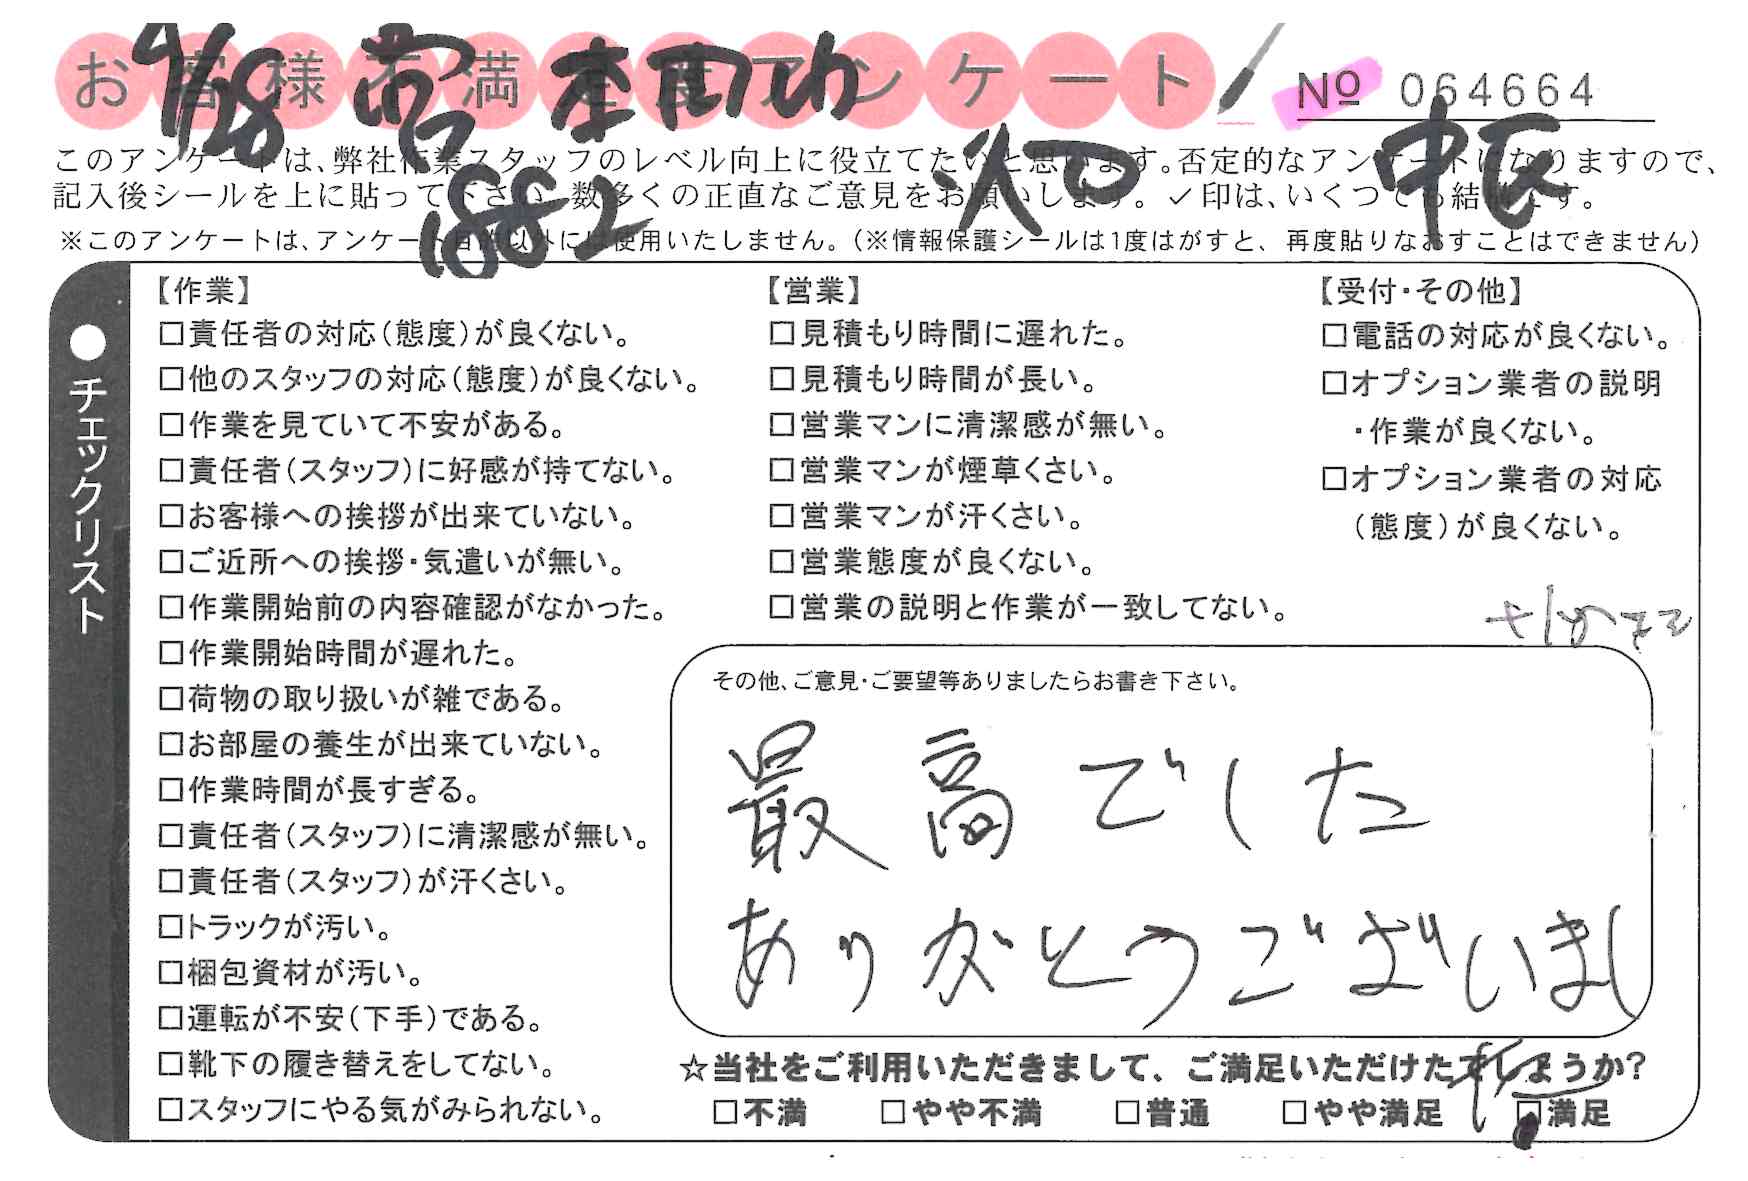 お客様不満足度アンケート
№ 064664
4/28
1882
このアンケートは、弊社作業スタッフのレベル向上に役立てたいと思います。否定的なアンケートになりますので、
記入後シールを上に貼って下さい。数多くの正直なご意見をお願いします。✓印は、いくつでも結構です。
※このアンケートは、アンケート目的以外には使用いたしません。(※情報保護シールは1度はがすと、再度貼りなおすことはできません)
●チェックリスト
【作業】
□責任者の対応(態度)が良くない。
□他のスタッフの対応(態度)が良くない。
□作業を見ていて不安がある。
□責任者(スタッフ)に好感が持てない。
□お客様への挨拶が出来ていない。
□ご近所への挨拶・気遣いが無い。
□作業開始前の内容確認がなかった。
□作業開始時間が遅れた。
□荷物の取り扱いが雑である。
□お部屋の養生が出来ていない。
□作業時間が長すぎる。
□責任者(スタッフ)に清潔感が無い。
□責任者(スタッフ)が汗くさい。
□トラックが汚い。
□梱包資材が汚い。
□運転が不安(下手)である。
□靴下の履き替えをしてない。
□スタッフにやる気がみられない。
【営業】
□見積もり時間に遅れた。
□見積もり時間が長い。
□営業マンに清潔感が無い。
□営業マンが煙草くさい。
□営業マンが汗くさい。
□営業態度が良くない。
□営業の説明と作業が一致してない。
【受付・その他】
□電話の対応が良くない。
□オプション業者の説明
・作業が良くない。
□オプション業者の対応
(態度)が良くない。
その他、ご意見・ご要望等ありましたらお書き下さい。
最高でした
ありがとうございまし
た
☆当社をご利用いただきまして、ご満足いただけたでしょうか?
□不満 □やや不満 □普通 □やや満足 □満足